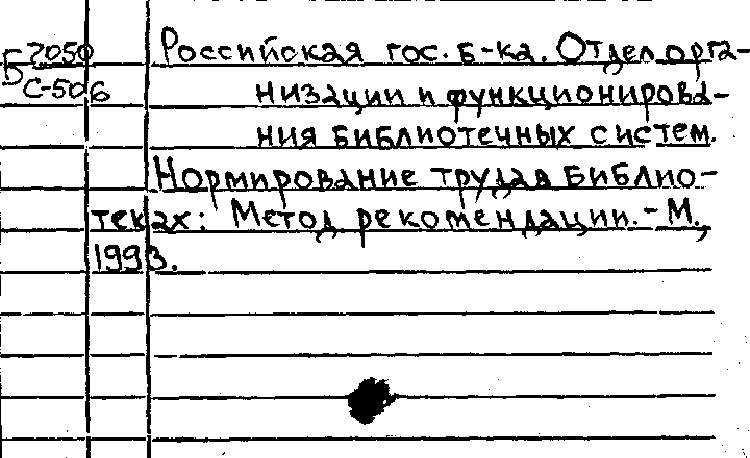 Б 7050
С-506
Российская гос. б-ка. Отдел орга-
низации и функционирова-
ния библиотечных систем.
Нормирование труда в библио-
теках: Метод. рекомендации. - М.,
1993.